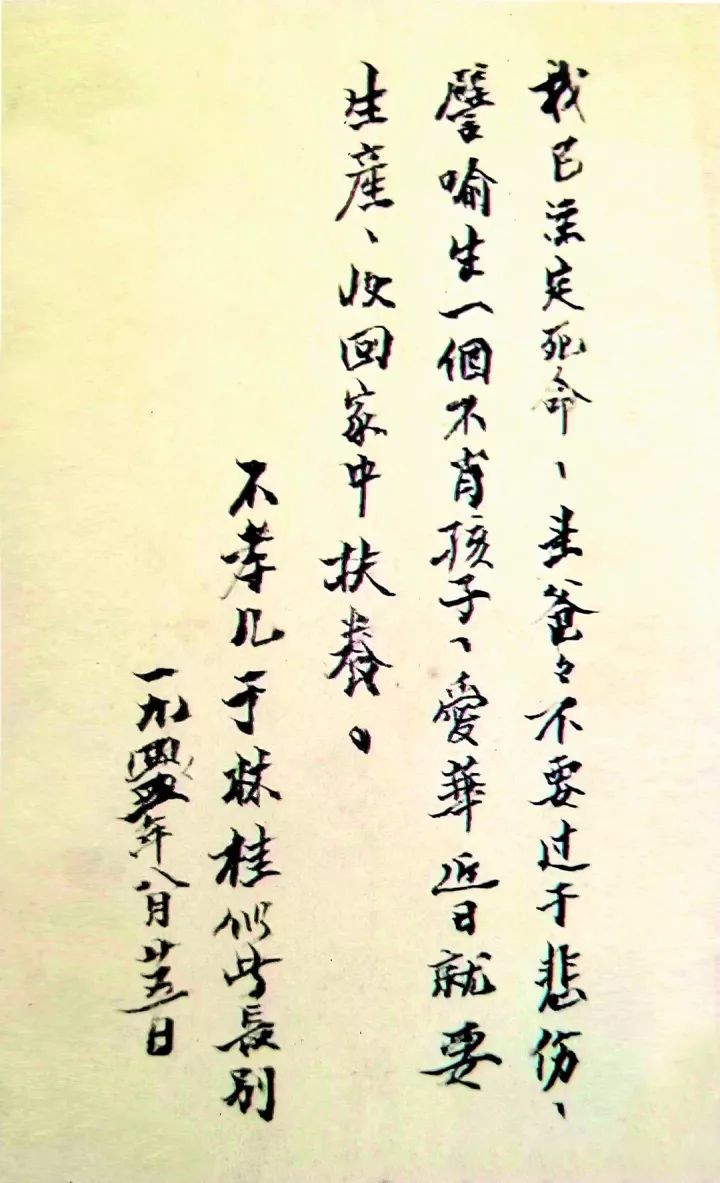 我已注定死命、望爸々不要过于悲伤、
譬喻生一個不肖孩子、愛華近日就要
生產、收回家中扶養。
不孝儿于株桂从此長别
一九四五年八月廿五日